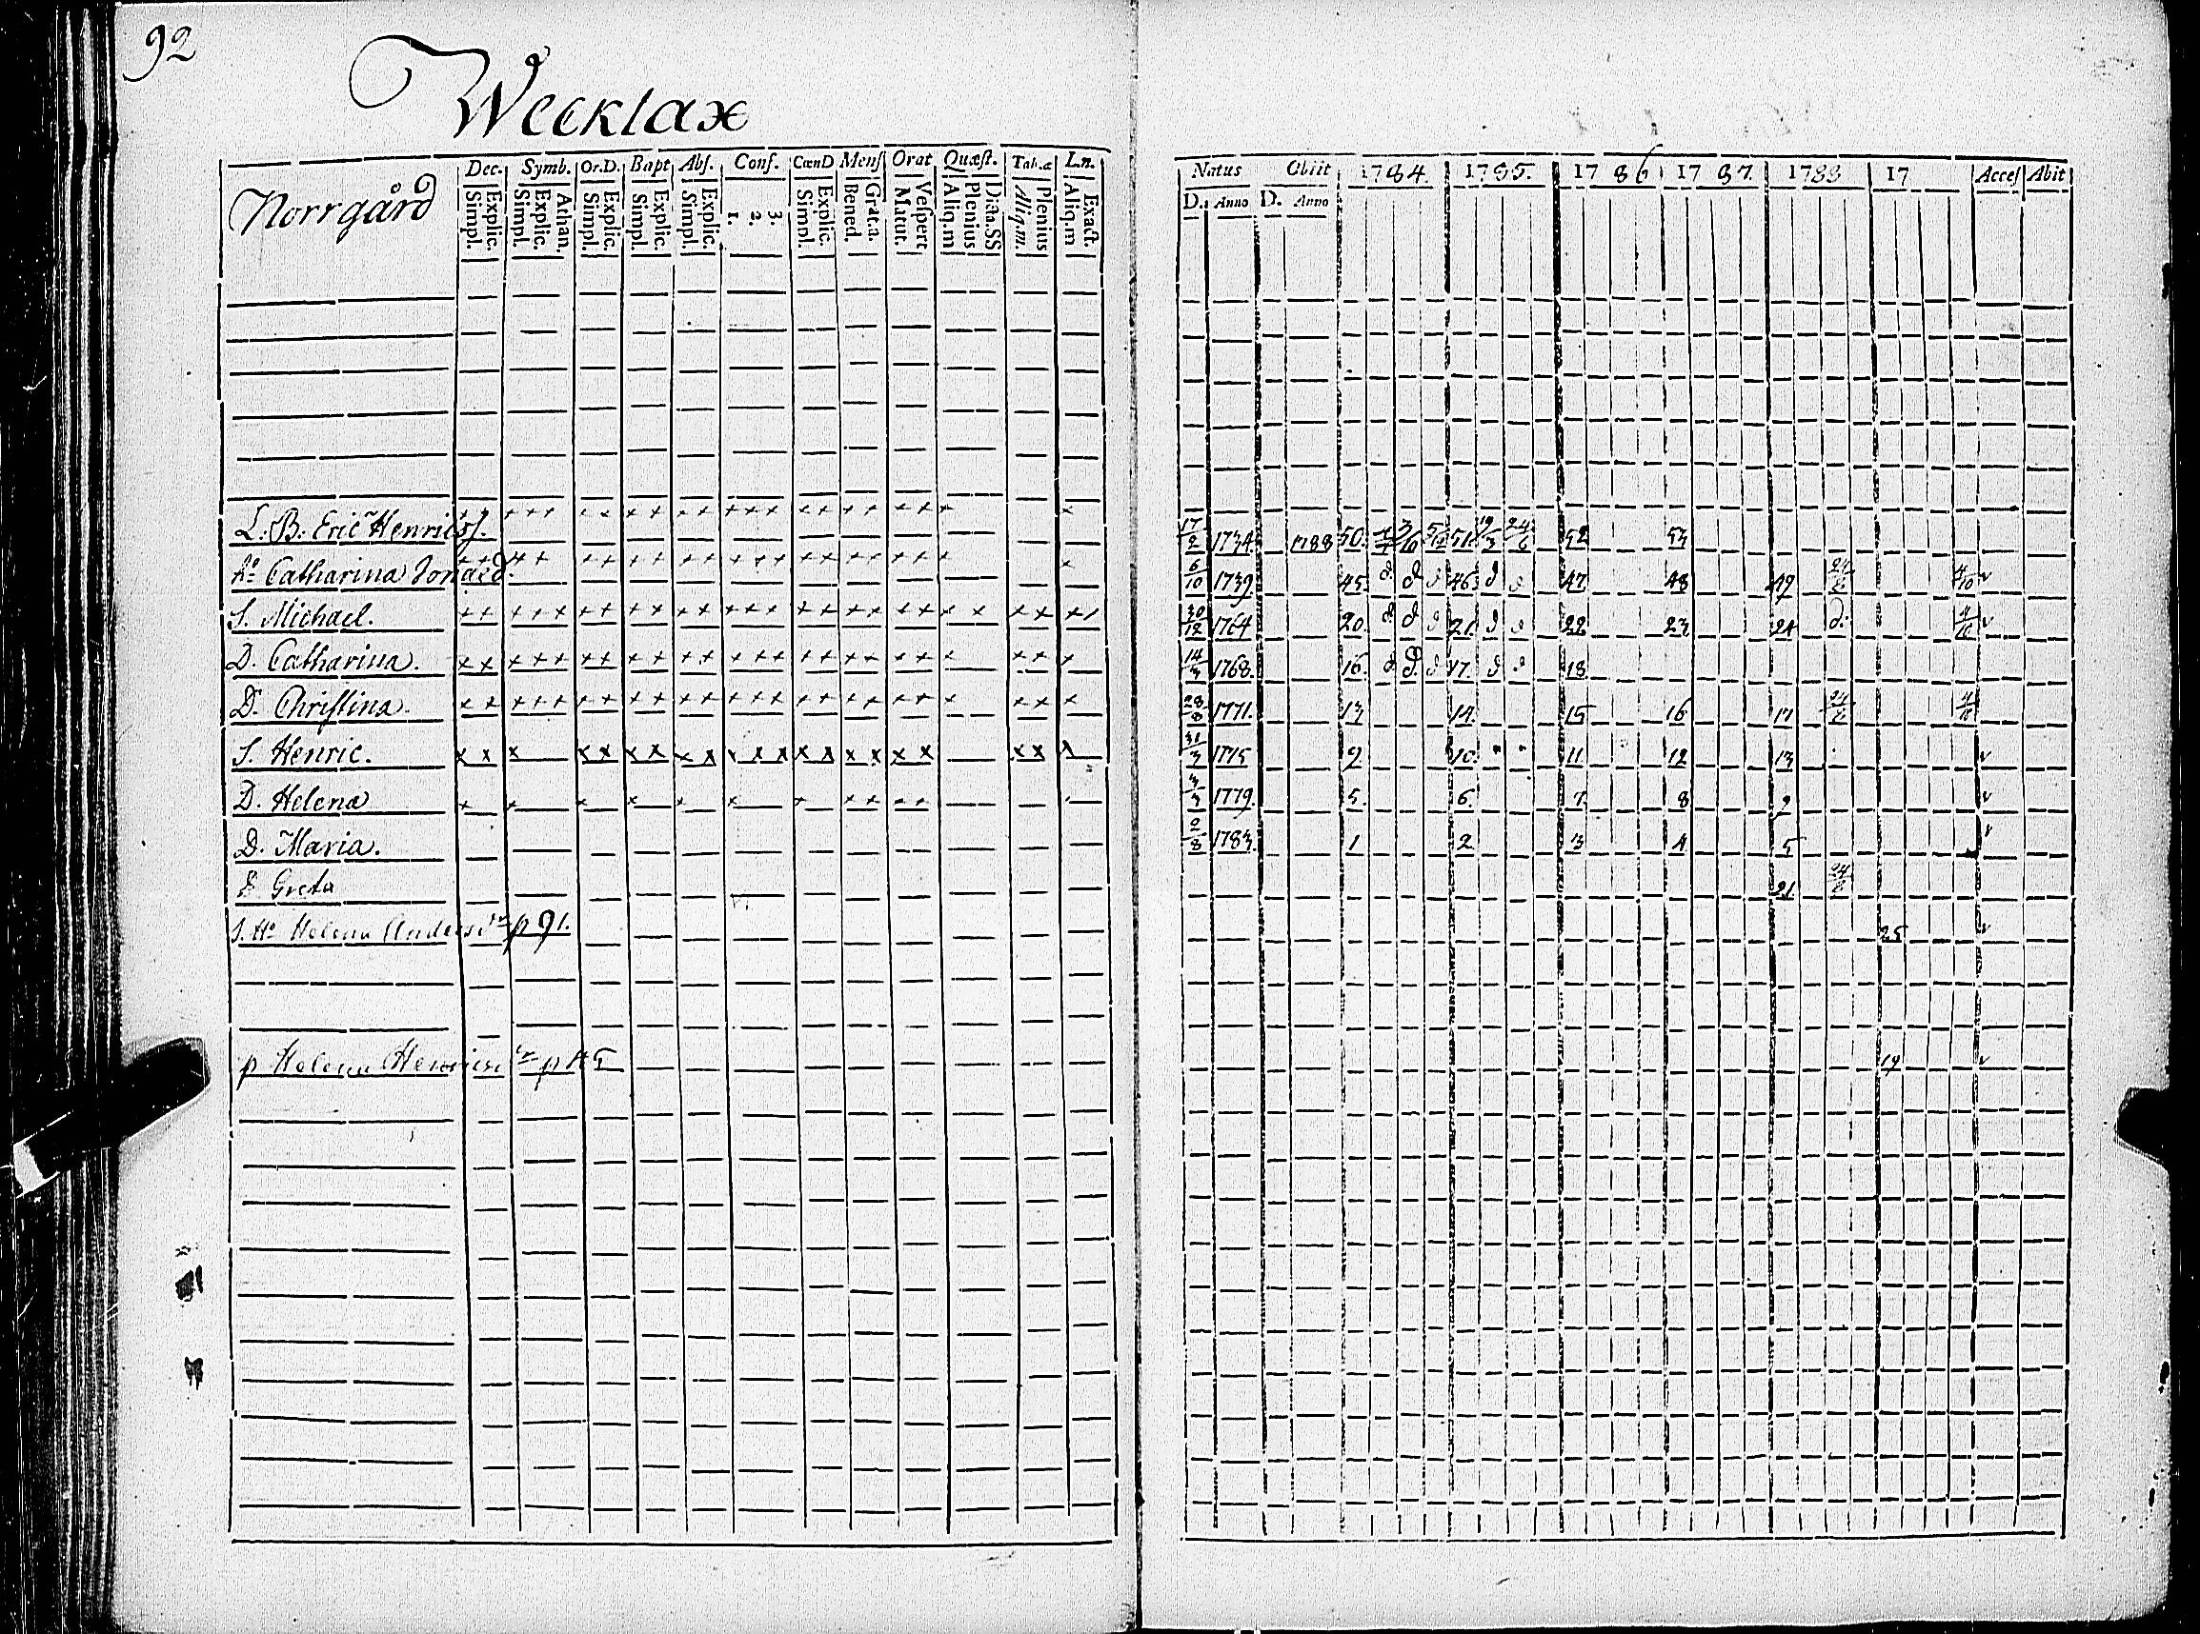 92
Weeklax
Norrgård
Dec. Symb. Or.D. Bapt Abs. Conf. CœnD Mens Orat Quæst. Tab.æ L.n.
Simpl. Explic. Simpl. Explic. Athan. Simpl. Explic. Simpl. Explic. Simpl. Explic. 1. 2. 3. Simpl. Explic. Bened. Grat.a. Matut. Vespert Aliq.m Plenius Dicta.SS Aliq.m. Plenius Aliq.m Exact.
Natus Obiit 1784. 1785. 1786 1787. 1788 17 Acces Abit
D. Anno D. Anno
L. B. Eric Henricss. 17/2 1734. 1788 50. 51. 19/3 24/6 52 53
h:o Catharina Jonæd. 6/10 1739. 45. 46. 47 48 49 4/10
S. Michael. 30/12 1764 20. 21. 22 23 24 4/10
D. Catharina. 14/3 1768. 16. 17. 18
D. Christina. 28/8 1771. 13 14. 15 16 17 4/10
S. Henric. 31/3 1775 9 10. 11 12 13
D. Helena 3/3 1779. 5. 6. 7 8 9
D. Maria. 2/8 1783. 1 2 3 4 5
Greta 21.
S. H:o Helena Anders p 91. 25
p Helena Henrics p 45 19